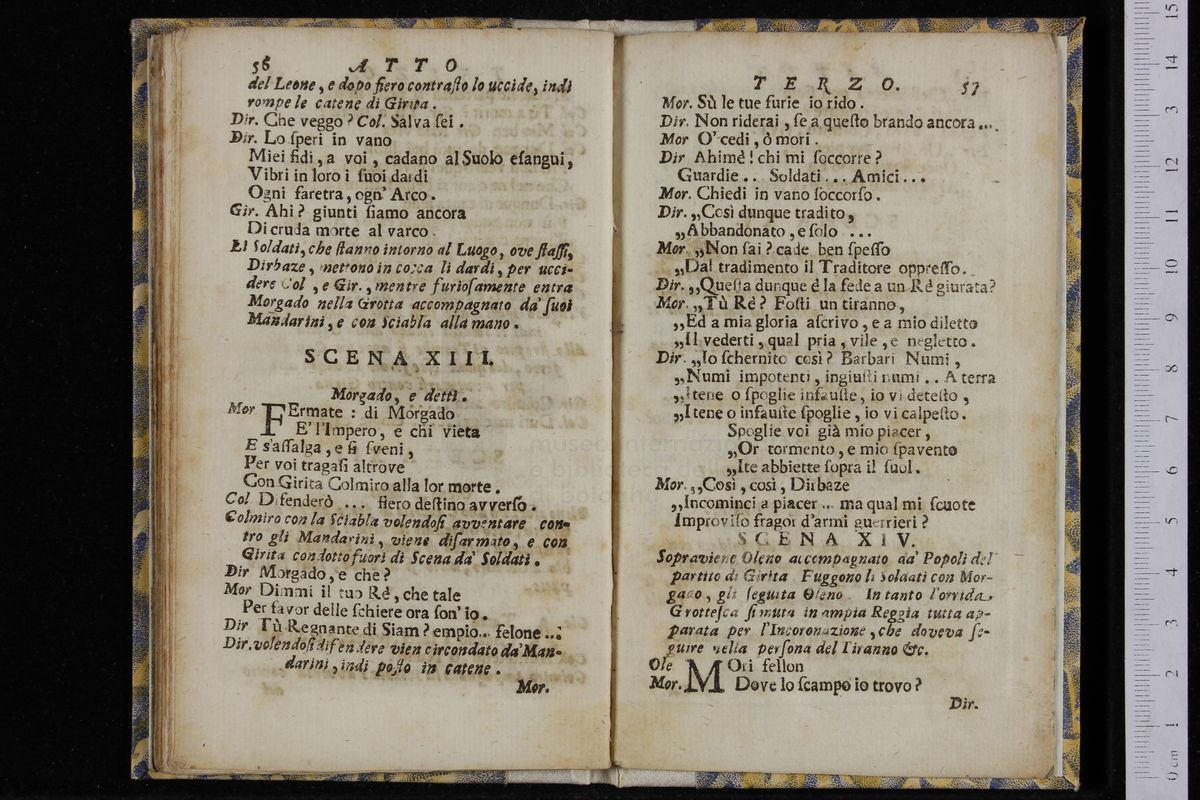 56 ATTO
del Leone, e dopo fiero contraſto lo uccide, indi
rompe le catene di Girita.
Dir. Che veggo? Col. Salva ſei.
Dir. Lo ſperi in vano
Miei fidi, a voi, cadano al Suolo eſangui,
Vibri in loro i ſuoi dardi
Ogni faretra, ogn' Arco.
Gir. Ahi? giunti ſiamo ancora
Di cruda morte al varco.
Li Soldati, che ſtanno intorno al Luogo, ove ſtaſſi,
Dirbaze, mettono in cocca li dardi, per ucci-
dere Col, e Gir., mentre furioſamente entra
Morgado nella Grotta accompagnato da' ſuoi
Mandarini, e con Sciabla alla mano.
SCENA XIII.
Morgado, e detti.
Mor FErmate : di Morgado
E' l'Impero, e chi vieta
E s'aſſalga, e ſi ſveni,
Per voi tragaſi altrove
Con Girita Colmiro alla lor morte.
Col Difenderò .... fiero deſtino avverſo.
Colmiro con la Sciabla volendoſi avventare con-
tro gli Mandarini, viene diſarmato, e con
Girita condotto fuori di Scena da' Soldati.
Dir Morgado, e che?
Mor Dimmi il tuo Rè, che tale
Per favor delle ſchiere ora ſon' io.
Dir Tù Regnante di Siam? empio... felone ...
Dir. volendoſi difendere vien circondato da' Man-
darini, indi poſto in catene.
Mor.
TERZO. 57
Mor. Sù le tue furie io rido.
Dir. Non riderai, ſe a queſto brando ancora ....
Mor O' cedi, ò mori.
Dir Ahimè! chi mi ſoccorre?
Guardie .. Soldati... Amici...
Mor. Chiedi in vano ſoccorſo.
Dir. „Così dunque tradito,
„Abbandonato, e ſolo ...
Mor „Non ſai? cade ben ſpeſſo
„Dal tradimento il Traditore oppreſſo.
Dir. „Queſta dunque è la fede a un Rè giurata?
Mor. „Tù Rè? Foſti un tiranno,
„Ed a mia gloria aſcrivo, e a mio diletto
„Il vederti, qual pria, vile, e negletto.
Dir. „Io ſchernito così? Barbari Numi,
„Numi impotenti, ingiuſti numi .. A terra
„Itene o ſpoglie infauſte, io vi deteſto,
„Itene o infauſte ſpoglie, io vi calpeſto.
Spoglie voi già mio piacer,
„Or tormento, e mio ſpavento
„Ite abbiette ſopra il ſuol.
Mor. „Così, così, Dirbaze
„Incominci a piacer ... ma qual mi ſcuote
Improviſo fragor d'armi guerrieri?
SCENA XIV.
Sopraviene Oleno accompagnato da' Popoli del
partito di Girita. Fuggono li Soldati con Mor-
gado, gli ſeguita Oleno. In tanto l'orrida
Grotteſca ſi muta in ampia Reggia tutta ap-
parata per l'Incoronazione, che doveva ſe-
guire nella perſona del Tiranno &c.
Ole MOri fellon
Mor. Dove lo ſcampo io trovo?
Dir.